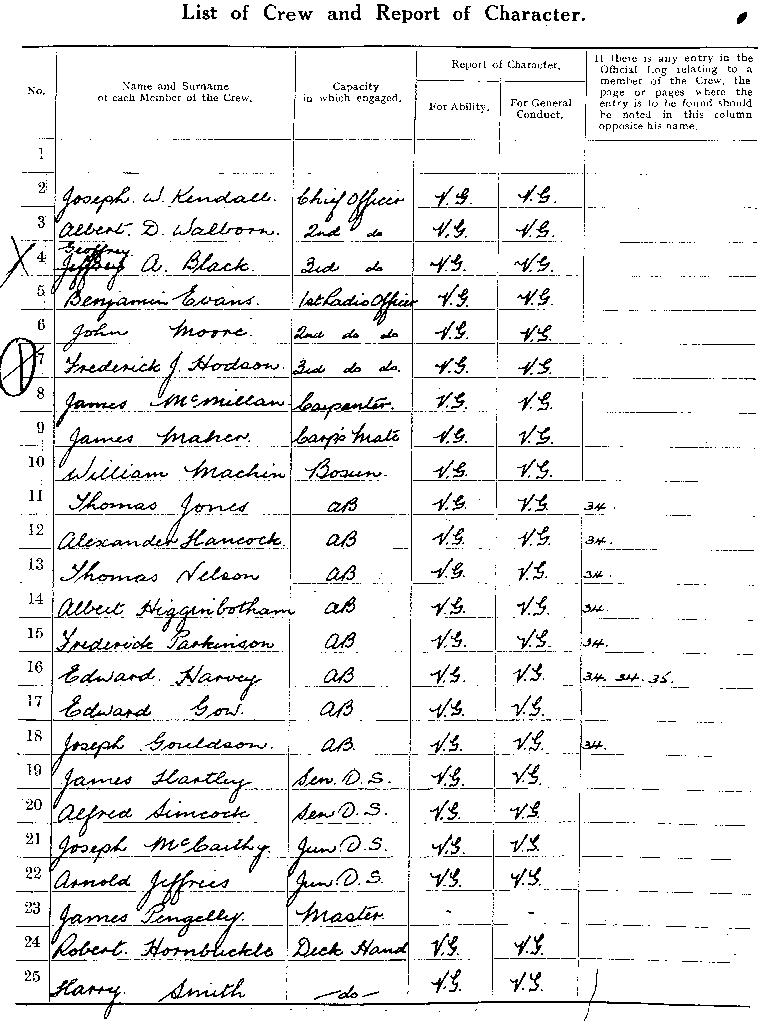 List of Crew and Report of Character.
No.
Name and Surname of each Member of the Crew.
Capacity in which engaged.
Report of Character.
For Ability.
For General Conduct.
If there is any entry in the Official Log relating to a member of the Crew, the page or pages where the entry is to be found should be noted in this column opposite his name.
1
2 Joseph. W. Kendall. Chief Officer V.G. V.G.
3 Albert. D. Walborn. 2nd do V.G. V.G.
Geoffrey
4 Jeffrey A. Black. 3rd do V.G. V.G.
5 Benjamin Evans. 1st Radio Officer V.G. V.G.
6 John Moore. 2nd do do V.G. V.G.
7 Frederick J. Hodson. 3rd do do. V.G. V.G.
8 James McMillan Carpenter. V.G. V.G.
9 James Maher. Carp's Mate V.G. V.G.
10 William Machin Bosun. V.G. V.G.
11 Thomas Jones AB V.G. V.G. 34.
12 Alexander Hancock. AB V.G. V.G. 34.
13 Thomas Nelson AB V.G. V.G. 34.
14 Albert Higginbotham AB V.G. V.G. 34.
15 Frederick Parkinson AB V.G. V.G. 34.
16 Edward. Harvey AB V.G. V.G. 34. 34. 35.
17 Edward Gow. AB V.G. V.G.
18 Joseph Gouldson. AB. V.G. V.G. 34.
19 James Hartley Sen. O.S. V.G. V.G.
20 Alfred Simcock Sen O.S. V.G. V.G.
21 Joseph McCarthy. Jun O.S. V.G. V.G.
22 Arnold Jeffries Jun O.S. V.G. V.G.
23 James Pengelly. Master - -
24 Robert. Hornbuckle Deck Hand V.G. V.G.
25 Harry. Smith —do— V.G. V.G.